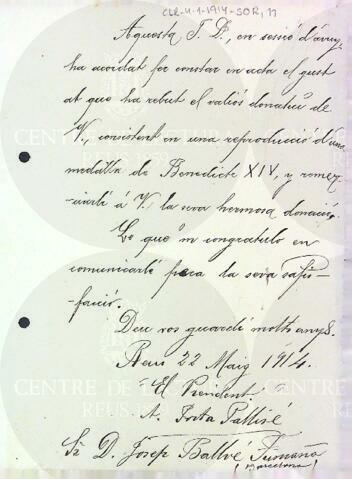 CLR-4-1-1914-SOR, 11
Aquesta J. D., en sessió d'avuy,
ha acordat fer constar en acta el gust
ab que ha rebut el valiós donatiu de
V., consistent en una reproducció d'una
medalla de Benedicte XIV, y remer-
ciarli á V. la seva hermosa donació.
Lo que 'm congratulo en
comunicarli pera la seva satis-
facció.
Deu vos guardi molts anys.
Reus 22 Maig 1914.
El President,
A. Porta Pallisé
Sr. D. Josep Ballvé
(Barcelona)
CENTRE DE LECTURA
REUS 1859
CENTRE DE LECTURA
REUS 1859